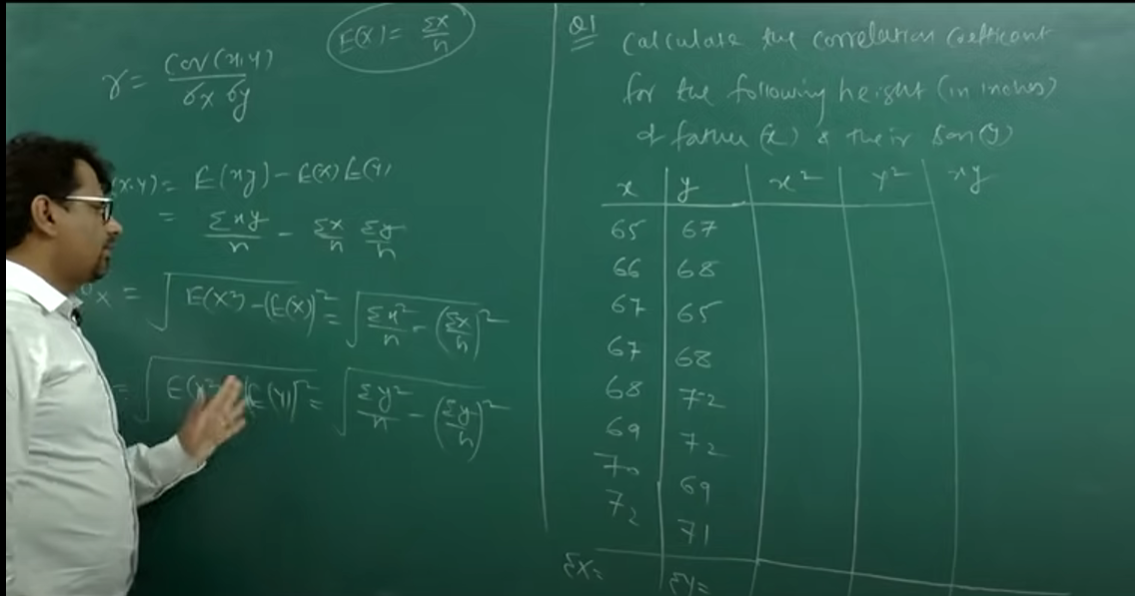 E(X) = Σx/n
r = Cov(x,y)/σx σy
(x,y) = E(xy) - E(x) E(y)
= Σxy/n - Σx/n Σy/n
σx = √(E(X²) - (E(X))²) = √(Σx²/n - (Σx/n)²)
= √(E(y²) (E(y))²) = √(Σy²/n - (Σy/n)²)
Q1 Calculate the correlation coefficient
for the following height (in inches)
of father (x) & their son (y)
x y x² y² xy
65 67
66 68
67 65
67 68
68 72
69 72
70 69
72 71
Σx= Σy=